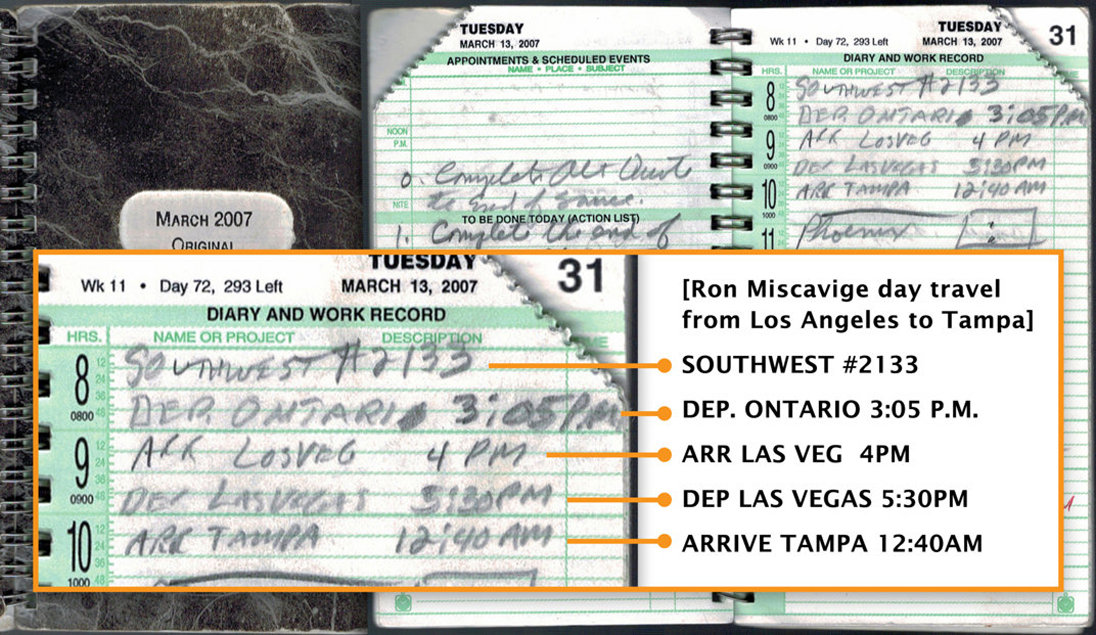 MARCH 2007
ORIGINAL
TUESDAY
MARCH 13, 2007
APPOINTMENTS & SCHEDULED EVENTS
NAME • PLACE • SUBJECT
NOON
P.M.
0. Complete Alt Quote
the End of
NITE
TO BE DONE TODAY (ACTION LIST)
1. Complete the end of
TUESDAY
Wk 11 • Day 72, 293 Left MARCH 13, 2007 31
DIARY AND WORK RECORD
HRS. NAME OR PROJECT DESCRIPTION
8 SOUTHWEST #2133
0800 DEP ONTARIO 3:05 P.M
9 ARR LOSVEG 4 PM
0900 DEP LASVEGAS 5:30PM
10 ARR TAMPA 12:40 AM
1000
11 Phoenix
TUESDAY
Wk 11 • Day 72, 293 Left MARCH 13, 2007 31
DIARY AND WORK RECORD
HRS. NAME OR PROJECT DESCRIPTION
8 12 SOUTHWEST #2133
24
0800 48 DEP. ONTARIO 3:05 P.M
9 12 ARR LOSVEG 4 PM
24
0900 48 DEP LASVEGAS 5:30PM
10 12 ARR TAMPA 12:40 AM
24
1000 48
[Ron Miscavige day travel
from Los Angeles to Tampa]
SOUTHWEST #2133
DEP. ONTARIO 3:05 P.M.
ARR LAS VEG 4PM
DEP LAS VEGAS 5:30PM
ARRIVE TAMPA 12:40AM